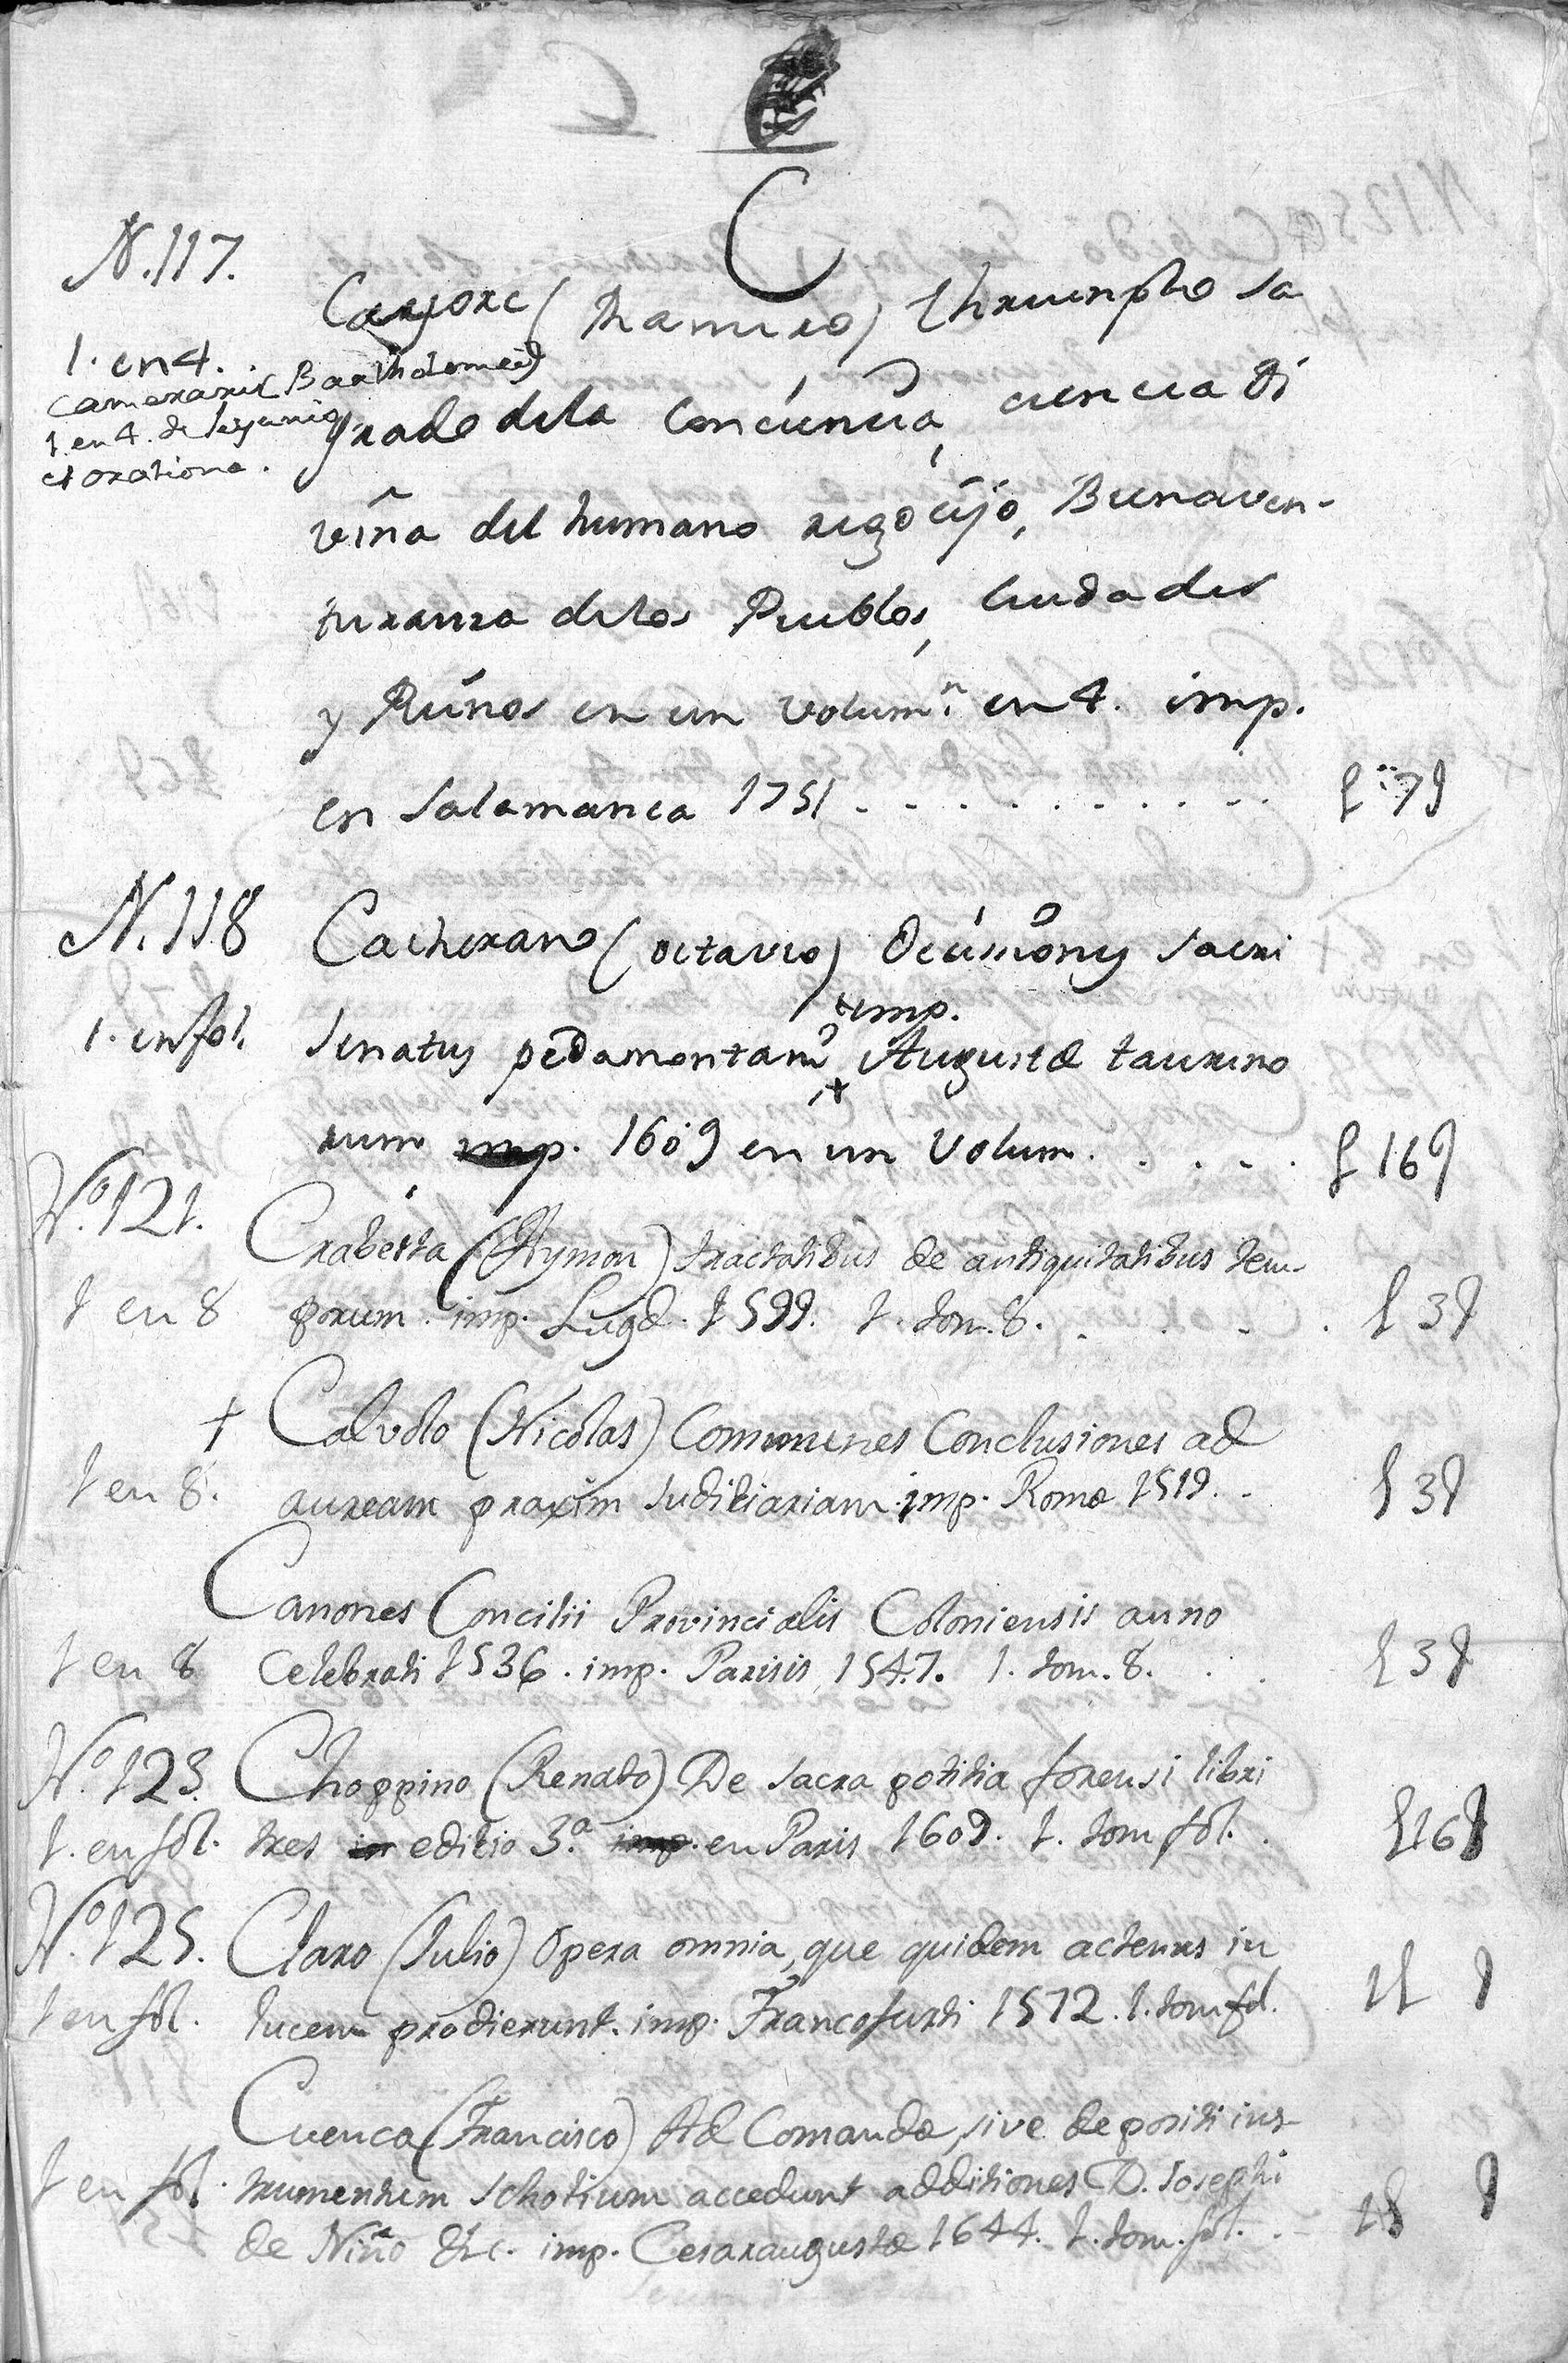 C
N. 117.
Cayore (Ramiro) thriumpho Sa
1. en 4.
Camerarii Bartholomei
1 en 4. de Jejunio
et oratione.
grado dela Conciencia, ciencia di
viña del humano regocijo, Bienaven-
turanza delos Pueblos, Ciudades
y Reinos en un Volum.n en 4. imp.
en Salamanca 1751 . . . . . . . . .
N. 118
Cacherano (octavio) Decisiones Sacri
1. en fol.
imp.
Senatus pedamontani, Augustæ taurino
rum imp. 1609 en un Volum. . . . .
£ 169
Nº. 121.
Craberta (Aymon) tractatibus de antiquitatibus tem-
1 en 8
porum. imp. Lugd. 1599. 1. tom. 8. . . . .
+ Calvolo (Nicolas) Communes Conclusiones ad
1 en 8.
auream praxim Judiciariam. imp. Romæ 1519. .
Canones Concilii Provincialis Coloniensis anno
1 en 8
Celebrati 1536. imp. Parisis 1547. 1. tom. 8. . .
Nº. 123.
Choppino (Renato) De Sacra politia forensi libri
1. en fol.
tres in editio 3.ª imp. en Paris 1609. 1. tom fol. .
Nº. 125.
Claro (Julio) Opera omnia, que quidem actenus in
1 en fol.
lucem prodierunt. imp. Francofurti 1572. 1. tom fol.
Cuenca (Francisco) Ad Comandæ, sive depositi ins-
1 en fol.
trumentum Scholium accedunt additiones D. Josephi
de Niño &c. imp. Cesaraugustæ 1644. 1. tom. fol. .